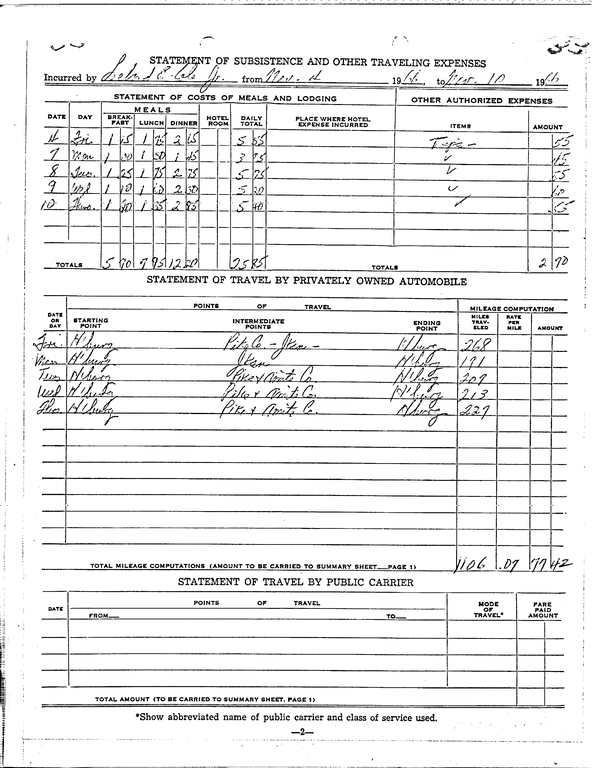 STATEMENT OF SUBSISTENCE AND OTHER TRAVELING EXPENSES
Incurred by Jr. from Nov. 4 1966 to Nov. 10 1966
STATEMENT OF COSTS OF MEALS AND LODGING OTHER AUTHORIZED EXPENSES
DATE DAY MEALS BREAK-FAST LUNCH DINNER HOTEL ROOM DAILY TOTAL PLACE WHERE HOTEL EXPENSE INCURRED ITEMS AMOUNT
4 Fri. 1 15 1 75 2 65 5 55 Tips - 55
7 Mon 1 1 50 1 45 3 75 ✓ 45
8 Tues. 1 25 1 75 2 75 5 75 ✓ 55
9 Wed 1 10 1 60 2 50 5 20 ✓ 60
10 Thur. 1 1 35 2 85 5 40 ✓ 55
TOTALS 5 90 7 95 12 20 25 85 TOTALS 2 70
STATEMENT OF TRAVEL BY PRIVATELY OWNED AUTOMOBILE
POINTS OF TRAVEL MILEAGE COMPUTATION
DATE OR DAY STARTING POINT INTERMEDIATE POINTS ENDING POINT MILES TRAV-ELED RATE PER MILE AMOUNT
Fri H'burg Pike Co. - Jxn - H'burg 268
Mon H'burg Jxn H'burg 191
Tues H'burg Pike & Amite Co. H'burg 207
Wed H'burg Pike & Amite Co. H'burg 213
Thur H'burg Pike & Amite Co. H'burg 227
TOTAL MILEAGE COMPUTATIONS (AMOUNT TO BE CARRIED TO SUMMARY SHEET—PAGE 1) 1106 .07 77 42
STATEMENT OF TRAVEL BY PUBLIC CARRIER
DATE POINTS OF TRAVEL MODE OF TRAVEL* FARE PAID AMOUNT
FROM TO
TOTAL AMOUNT (TO BE CARRIED TO SUMMARY SHEET, PAGE 1)
*Show abbreviated name of public carrier and class of service used.
—2—